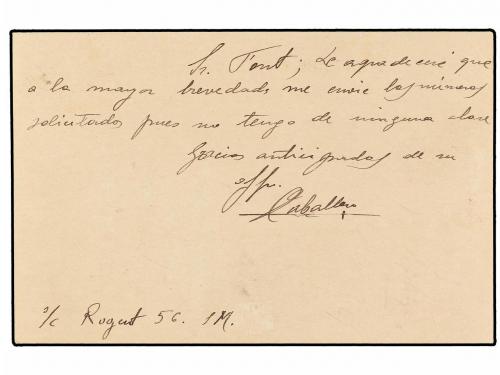 Sr. Font; Le agradeceré que
a la mayor brevedad me envie los números
solicitados pues no tengo de ninguna clase
Gracias anticipadas de su
affo.
Caballero
s/c Roger 56. 1M.